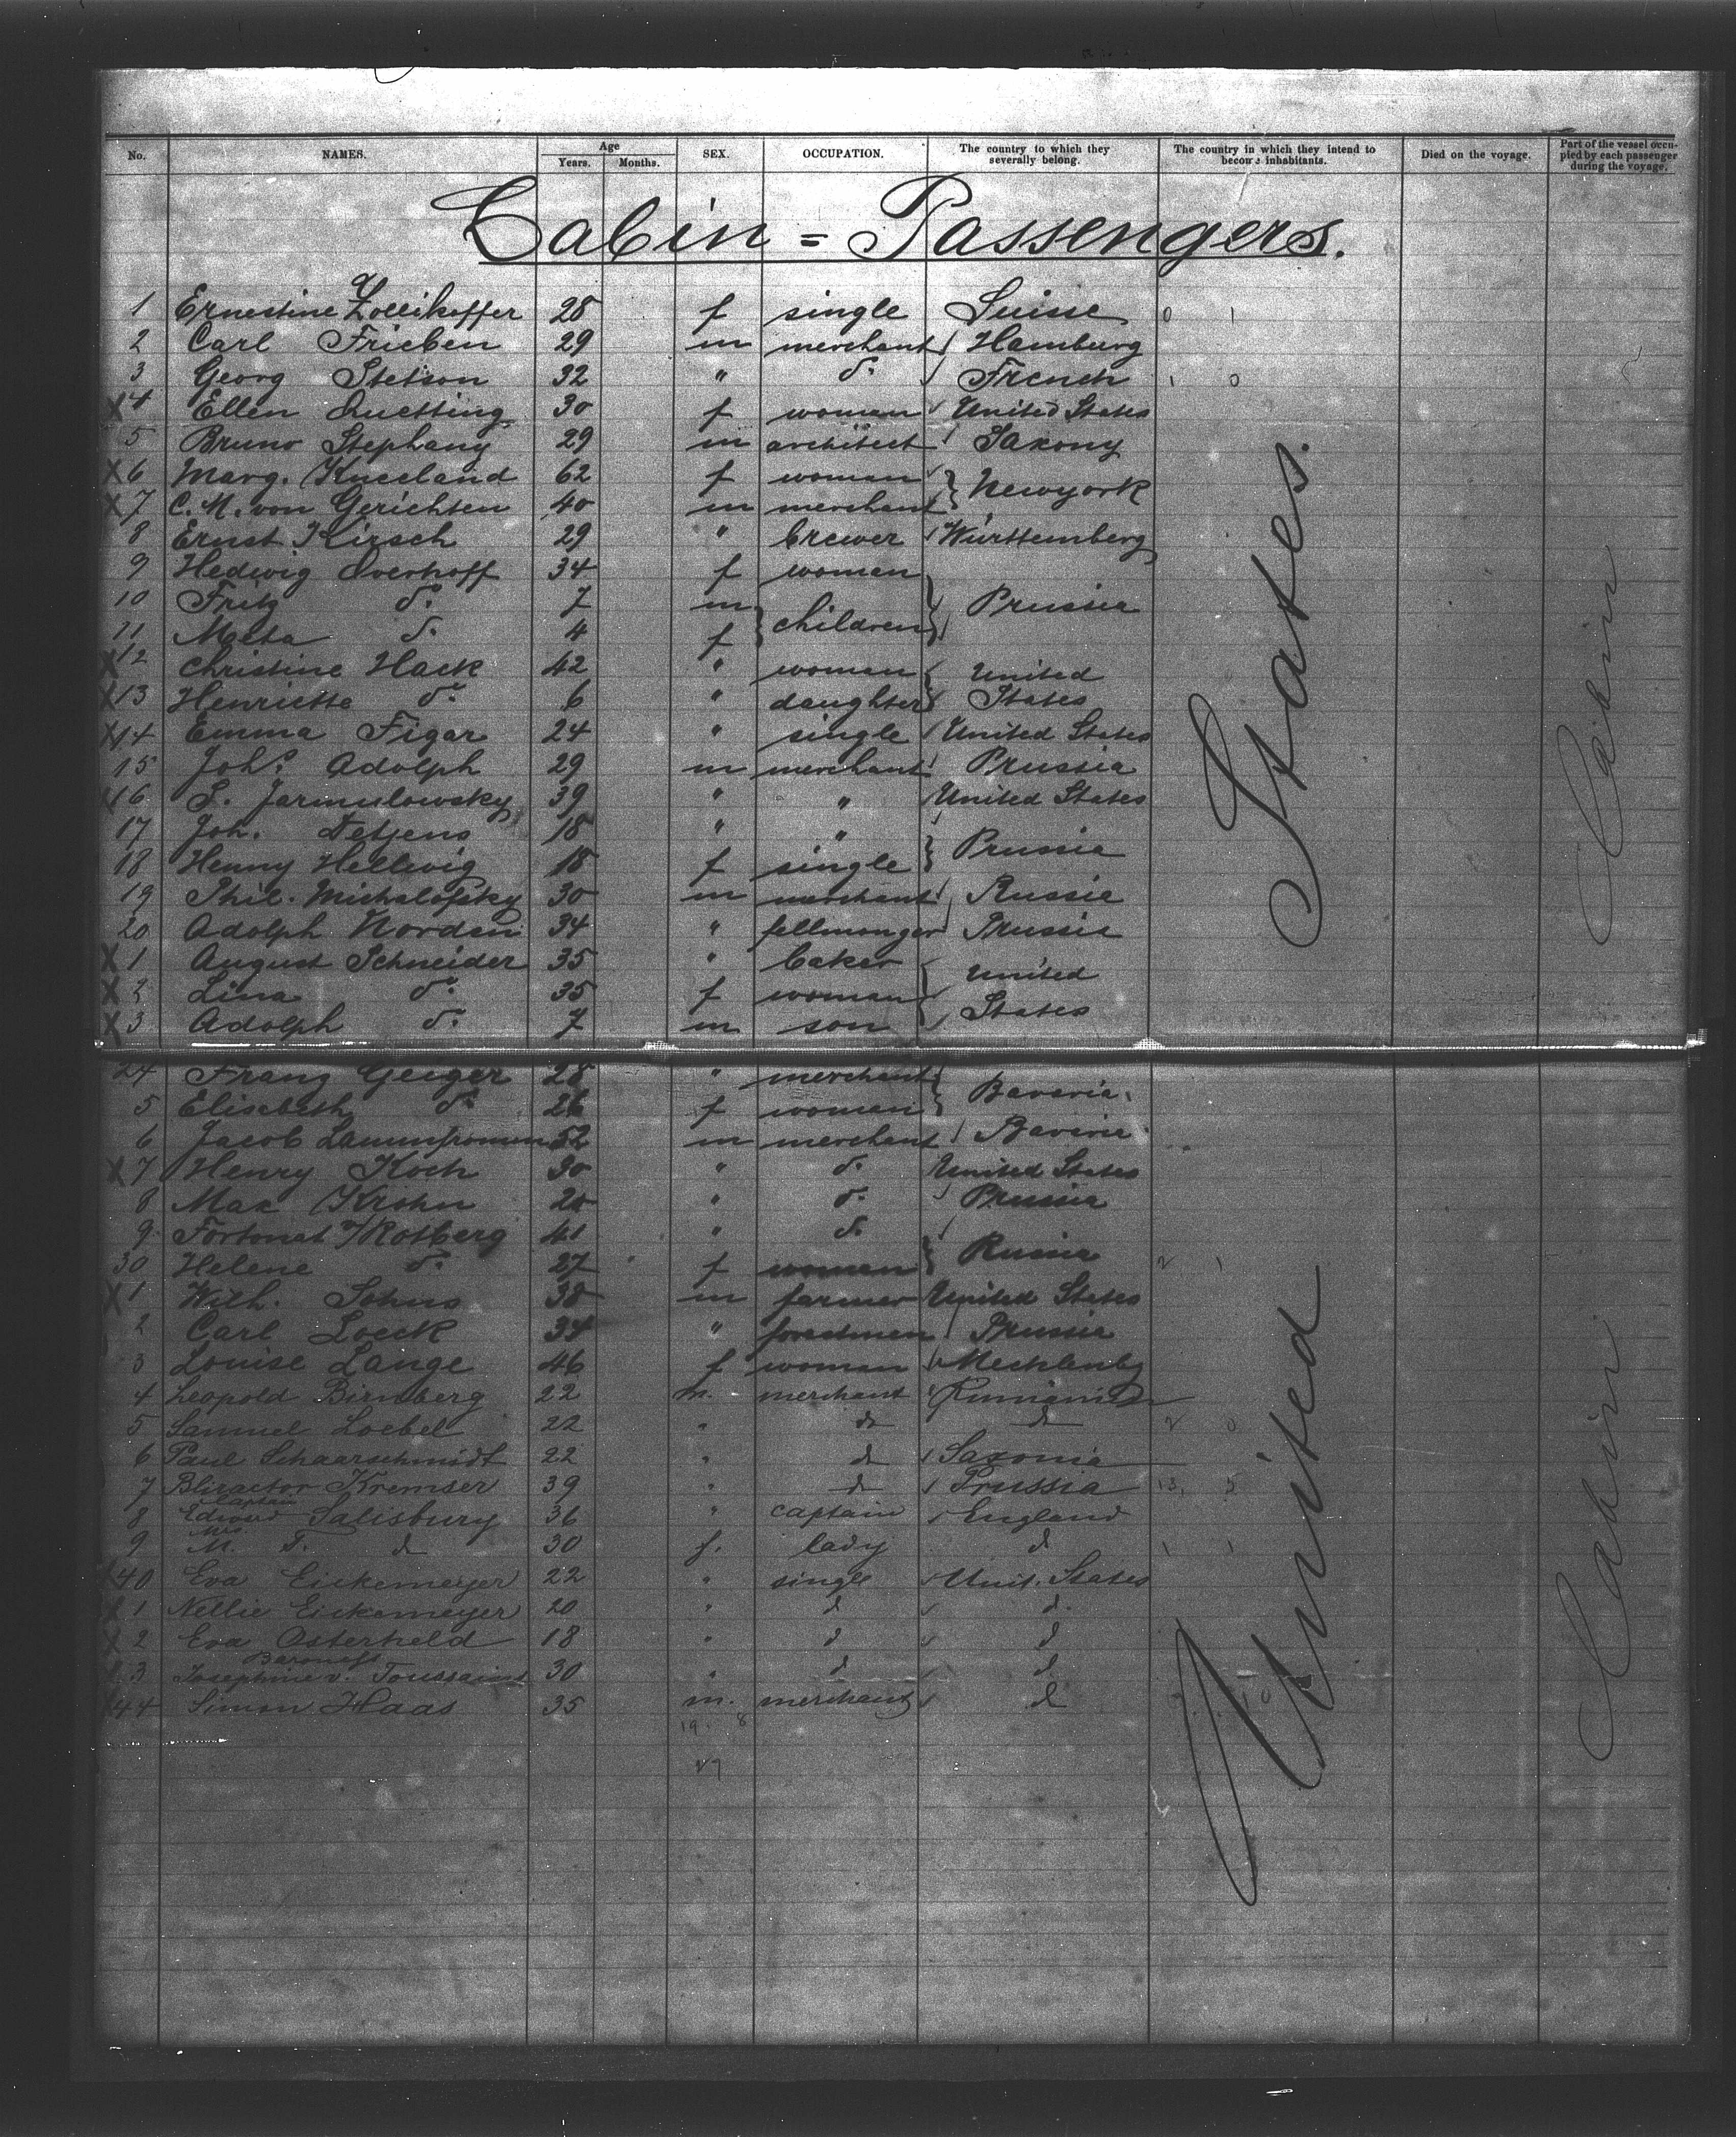 No. NAMES. Age Years. Months. SEX. OCCUPATION. The country to which they severally belong. The country in which they intend to become inhabitants. Died on the voyage. Part of the vessel occupied by each passenger during the voyage.
Cabin = Passengers.
1 Ernestine Zollikoffer 28 f single Suisse 0 1
2 Carl Frieben 29 m merchant Hamburg
3 Georg Stetson 32 " do. French 1 0
X 4 Ellen Quetting 30 f woman United States
5 Bruno Stephany 29 m architect Saxony
X 6 Marg. Kneeland 62 f woman } Newyork
X 7 C. M. von Gerichten 40 m merchant
8 Ernst Kirsch 29 " brewer Württemberg
9 Hedwig Overhoff 34 f woman
10 Fritz do. 7 m } children } Prussia
11 Meta do. 4 f
X 12 Christine Hack 42 " woman } United
X 13 Henriette do. 6 " daughter States
X 14 Emma Figar 24 " single United States
15 Johs. Adolph 29 m merchant Prussia
X 16 S. Jarmulowsky 39 " " United States
17 Joh. Detjens 18 " " } Prussia
18 Henny Hellwig 18 f single
19 Phil. Michalofsky 30 m merchant Russia
20 Adolph Norden 34 " fellmonger Prussia
X 1 August Schneider 35 " baker } United
X 2 Lina do. 35 f woman
X 3 Adolph do. 7 m son States
24 Franz Geiger 28 " merchant } Bavaria
5 Elisabeth do. 26 f woman
6 Jacob Lammfromm 52 m merchant Bavaria
X 7 Henry Koch 30 " do. United States
8 Max Krohn 20 " do. Prussia
9 Fortonat Rotberg 41 " do. } Russia
30 Helene do. 27 f woman 2 1
X 1 Wilh. Johns 38 m farmer United States
2 Carl Loeck 34 " Prussia
3 Louise Lange 46 f woman Mecklenbg
4 Leopold Birnberg 22 m. merchant Rumanien
5 Samuel Loebel 22 " do do 2 0
6 Paul Schaarschmidt 22 " do Saxonia
7 Kremser 39 " do Prussia 13, 5
Captain
8 Edward Salisbury 36 " captain England
Mrs
9 M. T. do 30 f. lady d 1 1
X 40 Eva Eickemeyer 22 " single Unit. States
X 1 Nellie Eickemeyer 20 " d d.
X 2 Eva Osterheld 18 " d d
Baroness
3 Josephine v. Toussaint 30 " d d
44 Simon Haas 35 m. merchant d
19. 8
27
United States.
Cabin
Cabin